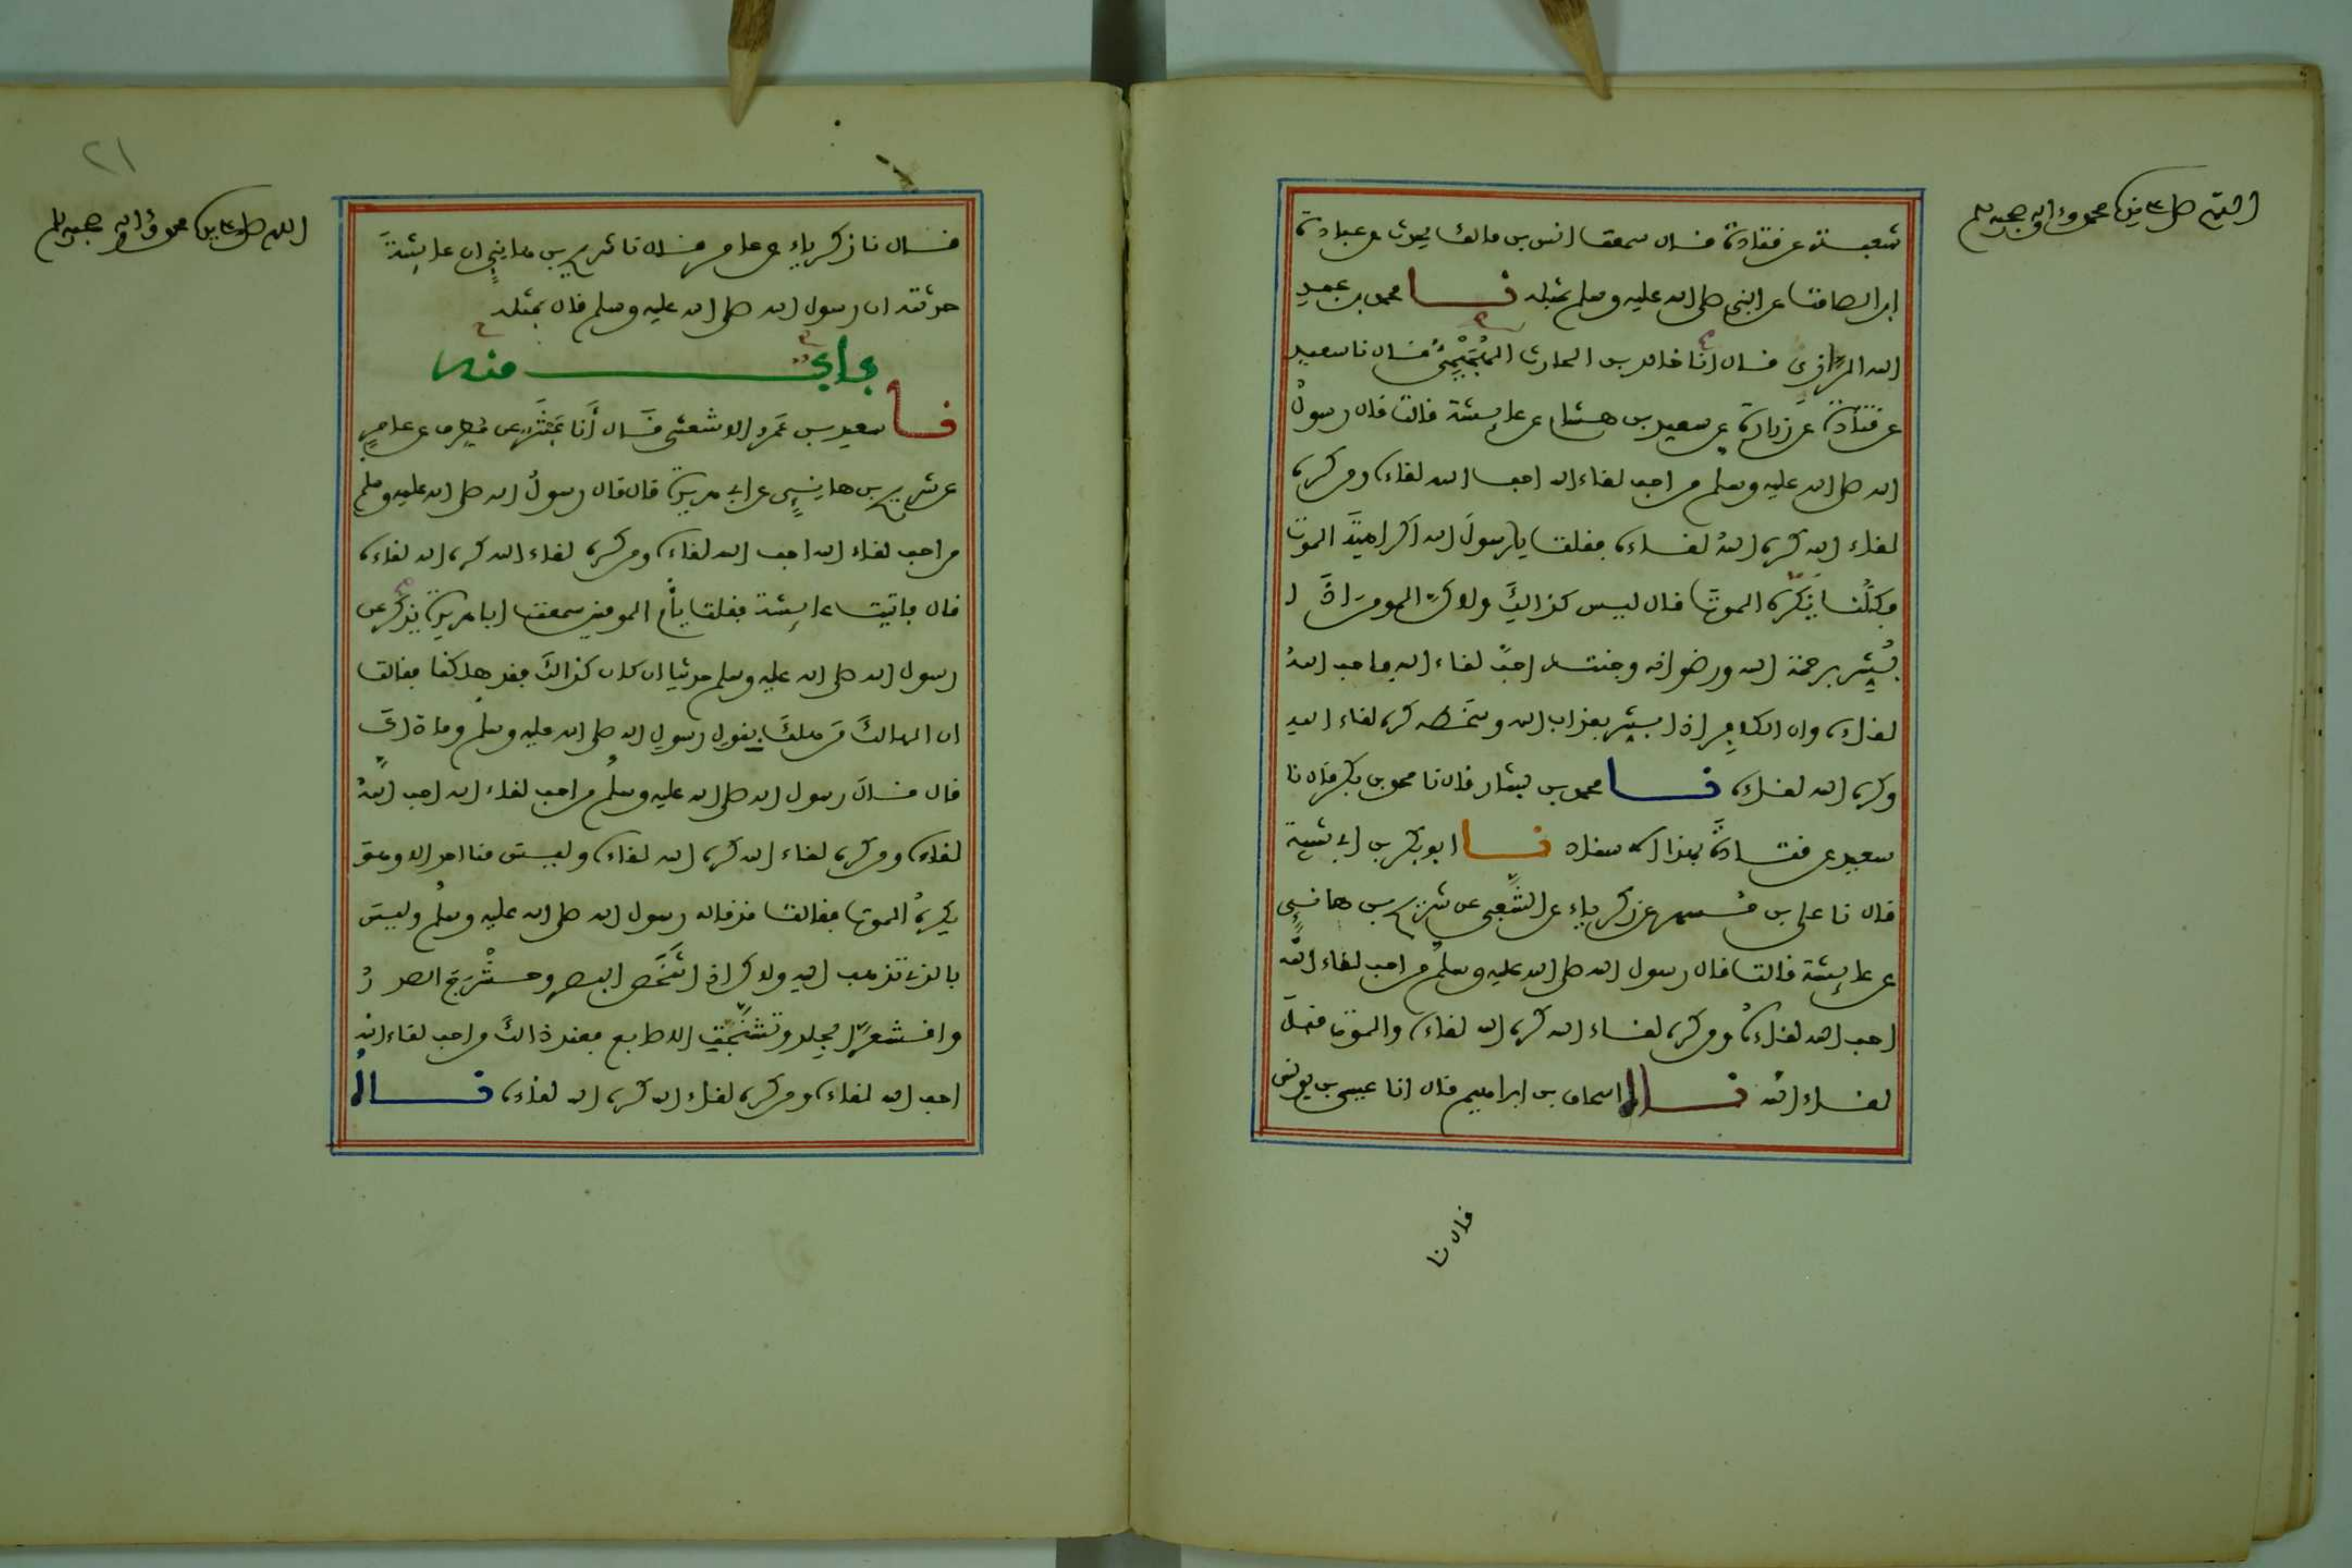 اللهم صل على سيدنا محمد وءاله وصحبه وسلم
شعبة عن قتادة قال سمعت انس بن مالك يحدث عن عبادة
ابن الصامت عن النبي صلى الله عليه وسلم بمثله نا محمد بن عبد
الله الرازي قال انا خالد بن الحارث الهجيمي قال نا سعيد
عن قتادة عن زرارة عن سعيد بن هشام عن عايشة قالت قال رسول
الله صلى الله عليه وسلم من احب لقاء الله احب الله لقاءه ومن كره
لقاء الله كره الله لقاءه فقلت يا رسول الله اكراهية الموت
فكلنا نكره الموت قال ليس كذالك ولاكن المومن اذا
بشر برحمة الله ورضوانه وجنته احب لقاء الله فاحب الله
لقاءه وان الكافر اذا بشر بعذاب الله وسخطه كره لقاء الله
وكره الله لقاءه نا محمد بن بشار قال نا محمد بن بكر قال نا
سعيد عن قتادة بهذا الاسناد نا ابو بكر بن ابي شيبة
قال نا علي بن مسهر عن زكرياء عن الشعبي عن شريح بن هانئ
عن عايشة قالت قال رسول الله صلى الله عليه وسلم من احب لقاء الله
احب الله لقاءه ومن كره لقاء الله كره الله لقاءه والموت قبل
لقاء الله نا اسحاق بن ابراهيم قال انا عيسى بن يونس
قال نا
٢١
اللهم صل على سيدنا محمد وءاله وصحبه وسلم
قال نا زكرياء عن عامر قال نا شريح بن هانئ ان عايشة
حدثته ان رسول الله صلى الله عليه وسلم قال بمثله
باب منه
نا سعيد بن عمرو الاشعثي قال أنا عبثر عن مطرف عن عامر
عن شريح بن هانئ عن ابي هريرة قال قال رسول الله صلى الله عليه وسلم
من احب لقاء الله احب الله لقاءه ومن كره لقاء الله كره الله لقاءه
قال فاتيت عايشة فقلت يأم المومنين سمعت ابا هريرة يذكر عن
رسول الله صلى الله عليه وسلم حديثا ان كان كذالك فقد هلكنا فقالت
ان الهالك من هلك بقول رسول الله صلى الله عليه وسلم وما ذاك
قال قال رسول الله صلى الله عليه وسلم من احب لقاء الله احب الله
لقاءه ومن كره لقاء الله كره الله لقاءه وليس منا احد الا وهو
يكره الموت فقالت قد قاله رسول الله صلى الله عليه وسلم وليس
بالذي تذهب اليه ولاكن اذا شخص البصر وحشرج الصدر
واقشعر الجلد وتشنجت الاصابع فعند ذالك من احب لقاء الله
احب الله لقاءه ومن كره لقاء الله كره الله لقاءه نا